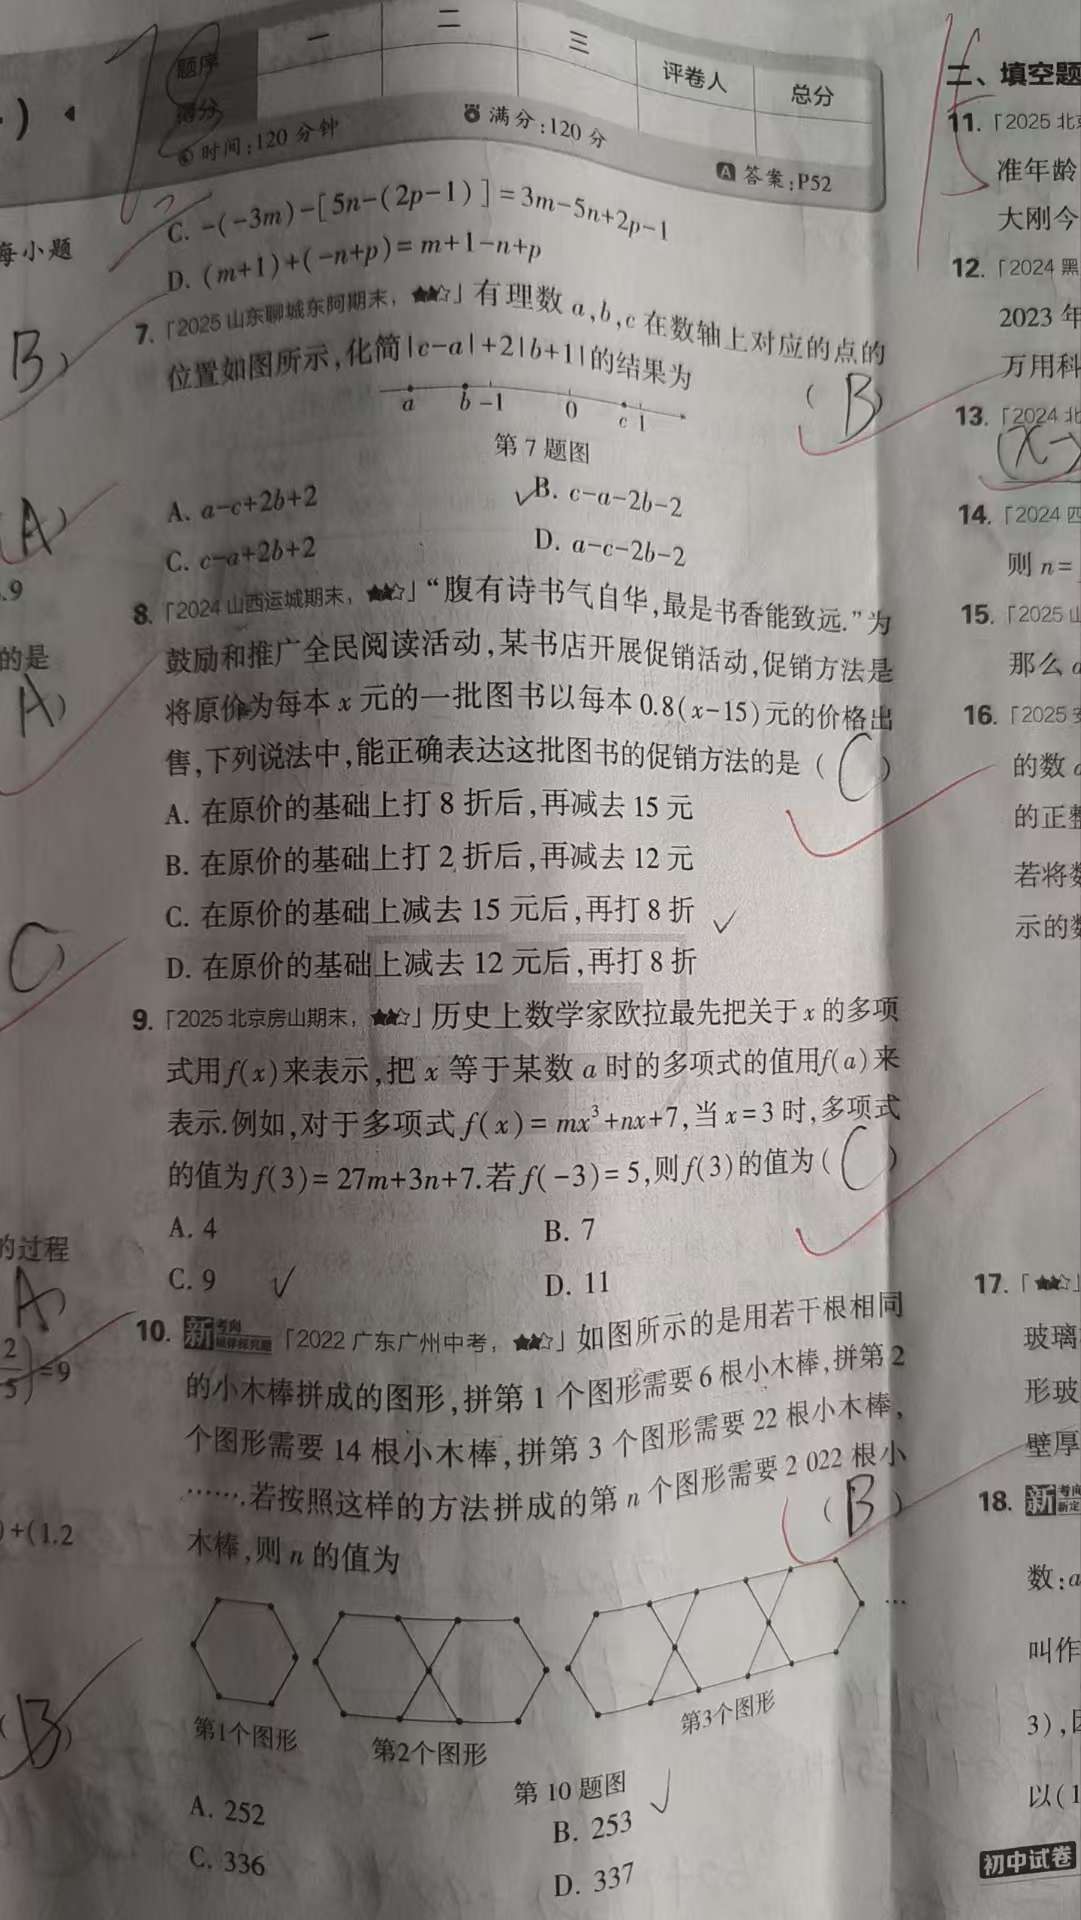 题序 一 二 三 评卷人 总分
得分
时间:120分钟 满分:120分 答案:P52
78
C. -(-3m)-[5n-(2p-1)]=3m-5n+2p-1
D. (m+1)+(-n+p)=m+1-n+p
7.「2025山东聊城东阿期末，★★☆」有理数a,b,c在数轴上对应的点的
位置如图所示,化简|c-a|+2|b+1|的结果为
(B)
a b -1 0 c 1
第7题图
A. a-c+2b+2 B. c-a-2b-2
C. c-a+2b+2 D. a-c-2b-2
8.「2024山西运城期末，★★☆」“腹有诗书气自华,最是书香能致远.”为
鼓励和推广全民阅读活动,某书店开展促销活动,促销方法是
将原价为每本x元的一批图书以每本0.8(x-15)元的价格出
售,下列说法中,能正确表达这批图书的促销方法的是(C)
A. 在原价的基础上打8折后,再减去15元
B. 在原价的基础上打2折后,再减去12元
C. 在原价的基础上减去15元后,再打8折
D. 在原价的基础上减去12元后,再打8折
9.「2025北京房山期末，★★☆」历史上数学家欧拉最先把关于x的多项
式用f(x)来表示,把x等于某数a时的多项式的值用f(a)来
表示.例如,对于多项式f(x)=mx³+nx+7,当x=3时,多项式
的值为f(3)=27m+3n+7.若f(-3)=5,则f(3)的值为(C)
A. 4 B. 7
C. 9 D. 11
10. 新考向「2022广东广州中考，★★☆」如图所示的是用若干根相同
的小木棒拼成的图形,拼第1个图形需要6根小木棒,拼第2
个图形需要14根小木棒,拼第3个图形需要22根小木棒,
……若按照这样的方法拼成的第n个图形需要2 022根小
木棒,则n的值为
(B)
…
第1个图形 第2个图形 第3个图形
第10题图
A. 252 B. 253
C. 336 D. 337
每小题
B)
(A)
.9
的是
A)
C)
的过程
A)
=9
)+(1.2
(B)
15
二、填空题
11.「2025北京
准年龄
大刚今
12.「2024黑
2023年
万用科
13.「2024北
14.「2024四
则n=
15.「2025山
那么
16.「2025安
的数
的正整
若将数
示的数
17.「★★☆」
玻璃
形玻
壁厚
18. 新考向
数:a
叫作
3),
以(1
初中试卷